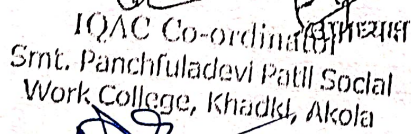 IQAC Co-ordinator
Smt. Panchfuladevi Patil Social
Work College, Khadki, Akola